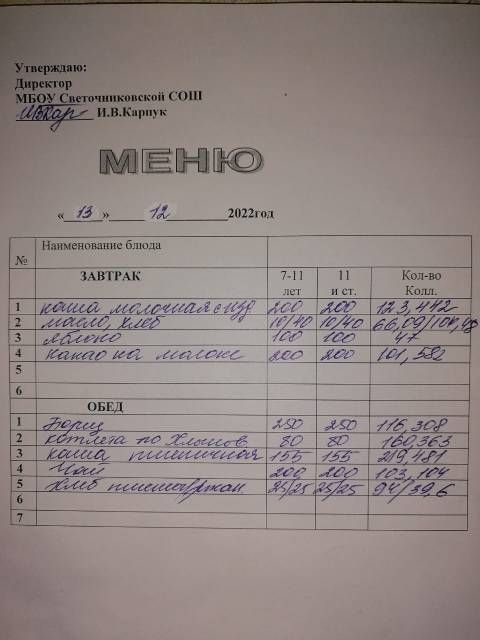 Утверждаю:
Директор
МБОУ Светочниковской СОШ
И.В.Карпук
МЕНЮ
« 13 » 12 2022год
№ Наименование блюда
ЗАВТРАК 7-11 лет 11 и ст. Кол-во Колл.
1 каша молочная с 200 200 123,442
2 масло, хлеб 10/40 10/40 66,09/
3 яблоко 100 100 47
4 какао на молоке 200 200 101,582
5
6
ОБЕД
1 Борщ 250 250 116,308
2 котлета по 80 80 160,363
3 каша пшеничная 155 155 219,481
4 Чай 200 200 103,104
5 Хлеб 25/25 25/25 94/39,6
6
7